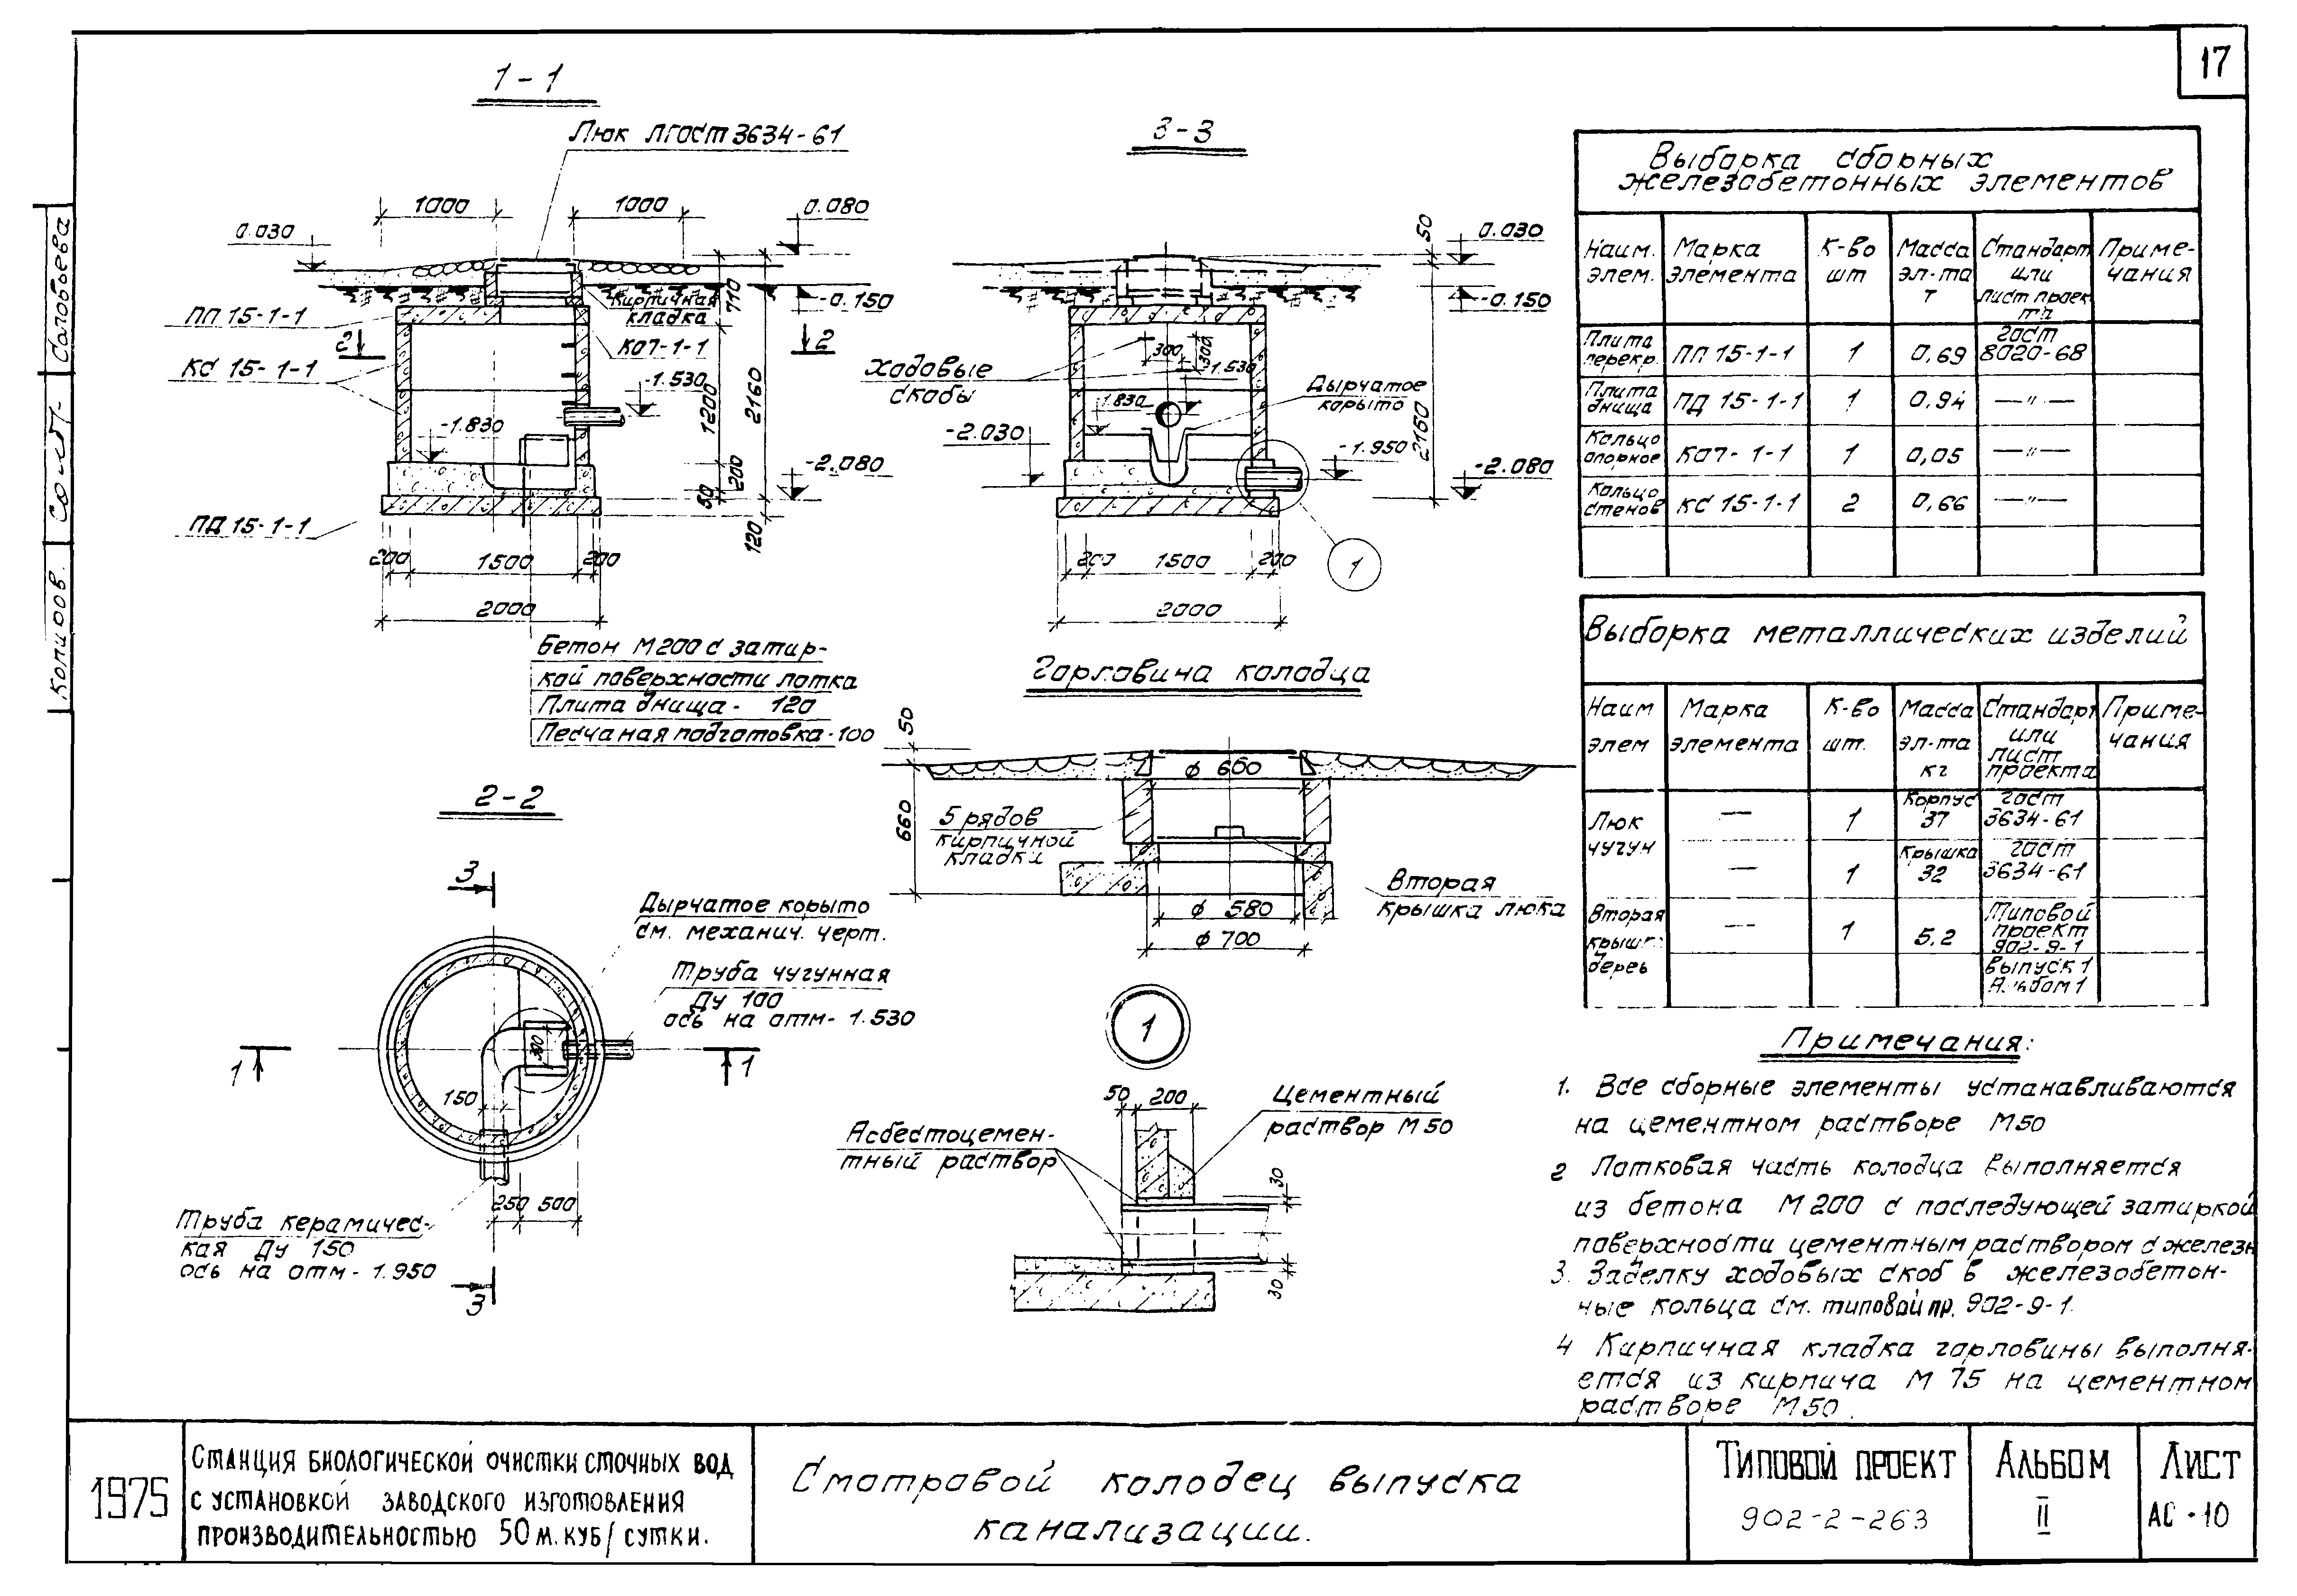 17
1-1
Люк Л ГОСТ 3634-61
1000
1000
0.080
0.030
-0.150
Кирпичная
кладка
710
ПП 15-1-1
2
2
КО7-1-1
КС 15-1-1
-1.530
1200
2160
-1.830
200
50
-2.080
120
ПД 15-1-1
200
1500
200
2000
Бетон М200 с затир-
кой поверхности лотка
Плита днища - 120
Песчаная подготовка - 100
3-3
50
0.030
-0.150
Ходовые
скобы
300
300
-1.530
Дырчатое
корыто
1.830
-2.030
-1.950
2160
-2.080
200
1500
200
1
2000
Горловина колодца
50
ϕ 600
660
5 рядов
кирпичной
кладки
Вторая
крышка люка
ϕ 580
ϕ 700
2-2
3
Дырчатое корыто
см. механич. черт.
Труба чугунная
Ду 100
ось на отм - 1.530
300
1
1
150
250 500
Труба керамичес-
кая Ду 150
ось на отм - 1.950
3
1
50 200
Цементный
раствор М50
Асбестоцемен-
тный раствор
30
30
Выборка сборных
железобетонных элементов
Наим. элем. Марка элемента К-во шт Масса эл-та т Стандарт или лист проекта Приме-чания
Плита перекр. ПП 15-1-1 1 0,69 ГОСТ 8020-68
Плита днища ПД 15-1-1 1 0.94 —"—
Кольцо опорное КО7-1-1 1 0,05 —"—
Кольцо стенов КС 15-1-1 2 0,66 —"—
Выборка металлических изделий
Наим элем Марка элемента К-во шт. Масса эл-та кг Стандарт или лист проекта Приме-чания
Люк чугун — 1 Корпус 37 ГОСТ 3634-61
— 1 Крышка 32 ГОСТ 3634-61
Вторая крышк. дерев — 1 5.2 Типовой проект 902-9-1
выпуск 1
Альбом 1
Примечания:
1. Все сборные элементы устанавливаются
на цементном растворе М50
2 Лотковая часть колодца выполняется
из бетона М200 с последующей затиркой
поверхности цементным раствором с железн
3. Заделку ходовых скоб в железобетон-
ные кольца см. типовой пр. 902-9-1.
4 Кирпичная кладка горловины выполня-
ется из кирпича М 75 на цементном
растворе М50.
Копиров. Соловьева
1975
Станция биологической очистки сточных вод
с установкой заводского изготовления
производительностью 50 м.куб/сутки.
Смотровой колодец выпуска
канализации.
Типовой проект
902-2-263
Альбом
II
Лист
АС-10